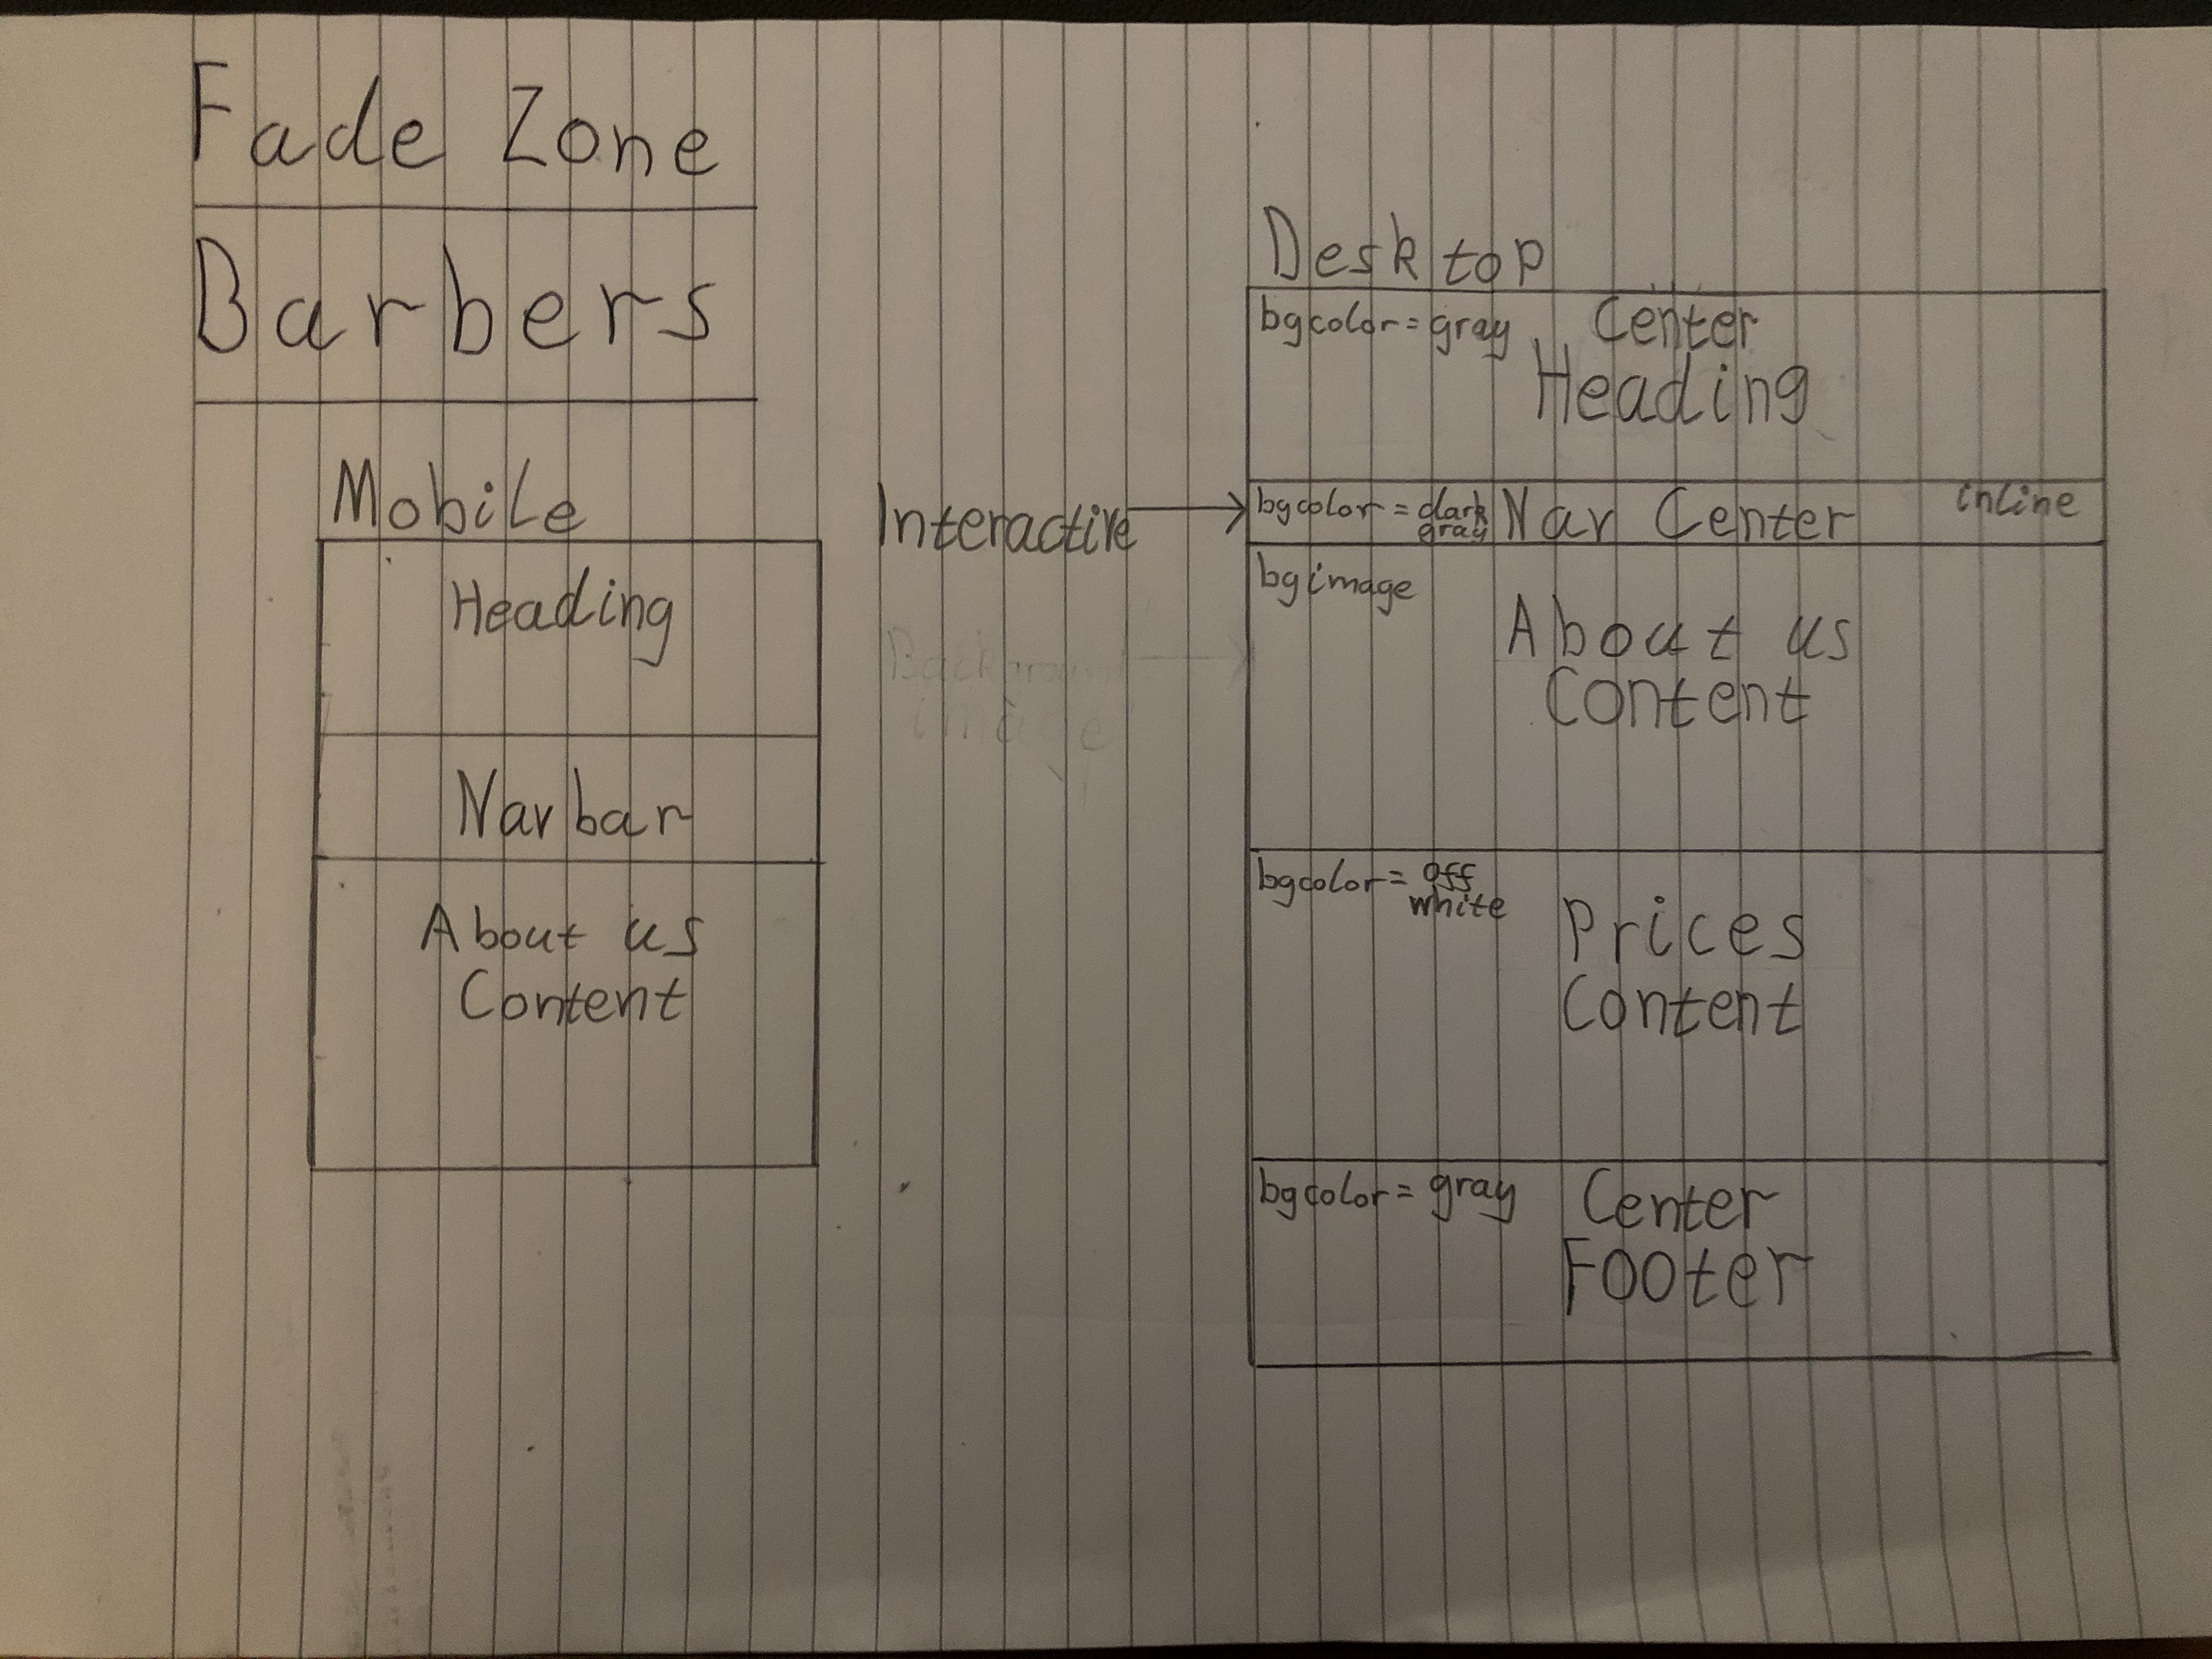 Fade Zone
Barbers
Mobile
Heading
Navbar
About us
Content
Interactive
Background
image
Desktop
bgcolor=gray
Center
Heading
bgcolor=dark
gray
Nav Center
inline
bgimage
About us
Content
bgcolor=off
white
Prices
Content
bgcolor=gray
Center
Footer